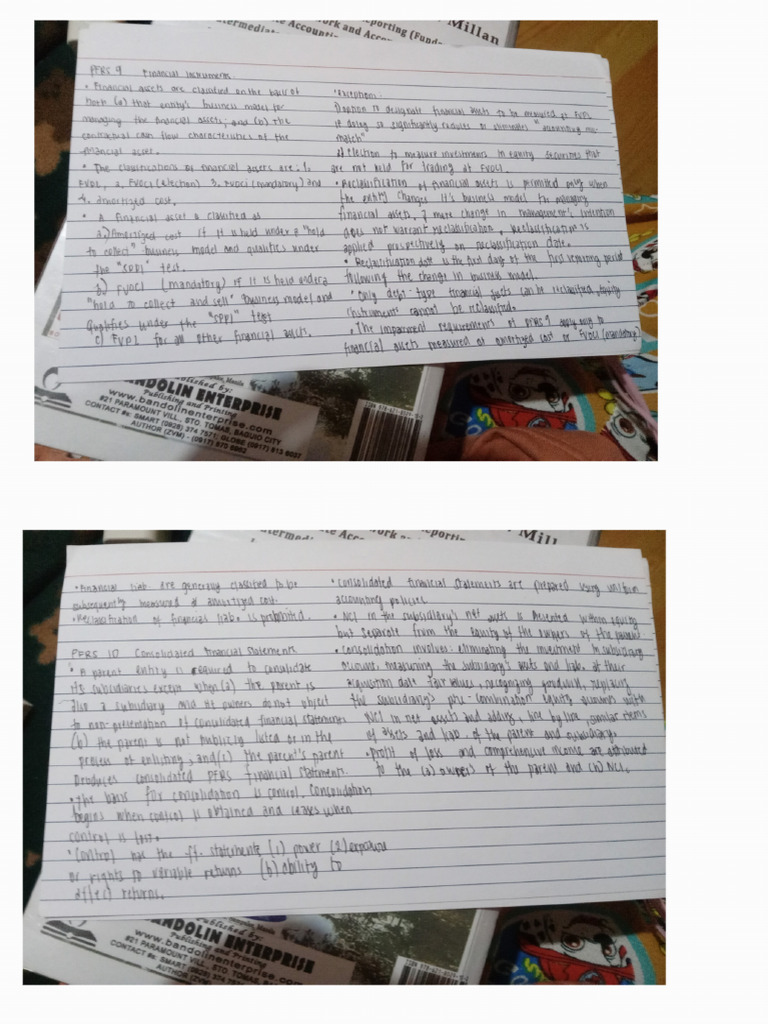 Millan
PFRS 9 Financial Instruments
• Financial assets are classified on the basis of
both (a) that entity's business model for
managing the financial assets; and (b) the
contractual cash flow characteristics of the
financial asset.
• The classifications of financial assets are: 1.
FVPL, 2. FVOCI (election) 3. FVOCI (mandatory) and
4. amortized cost.
• A financial asset is classified as
a.) Amortized cost if it is held under a "hold
to collect" business model and qualifies under
the "SPPI" test.
b.) FVOCI (mandatory) if it is held under a
"hold to collect and sell" business model and
qualifies under the "SPPI" test
c) FVPL for all other financial assets.
Option to designate financial assets to be measured at FVPL
if doing so significantly reduces or eliminates "accounting mis-
match"
election to measure investments in equity securities that
are not held for trading at FVOCI.
• Reclassification of financial assets is permitted only when
the entity changes it's business model for managing
financial assets, a mere change in management's intention
does not warrant reclassification. Reclassification is
applied prospectively on reclassification date.
• Reclassification date is the first day of the first reporting period
following the change in business model.
• Only debt-type financial assets can be reclassified, equity
instruments cannot be reclassified.
• The impairment requirements of PFRS 9 apply only to
financial assets measured at amortized cost or FVOCI (mandatory)
Published by:
BANDOLIN ENTERPRISE
Publishing and Printing
www.bandolinenterprise.com
#21 PARAMOUNT VILL., STO. TOMAS, BAGUIO CITY
CONTACT #s: SMART (0928) 374 7571; GLOBE
AUTHOR (ZVM) - (0917)
• Financial liab. are generally classified to be
subsequently measured at amortized cost.
• Reclassification of financial liab. is prohibited.
PFRS 10 Consolidated Financial Statements
• A parent entity is required to consolidate
its subsidiaries except when (a) the parent is
also a subsidiary and its owners do not object
to non-presentation of consolidated financial statements
(b) the parent is not publicly listed or in the
process of enlisting; and (c) the parent's parent
produces consolidated PFRS financial statements.
• The basis for consolidation is control. Consolidation
begins when control is obtained and ceases when
control is lost.
• Control has the ff. statements (1) power (2) exposure
or rights to variable returns (b) ability to
affect returns.
• Consolidated financial statements are prepared using uniform
accounting policies
• NCI in the subsidiary's net assets is presented within equity
but separate from the equity of the owners of the parent
• Consolidation involves eliminating the investment in subsidiary
account, measuring the subsidiary's assets and liab. at their
acquisition date fair values, recognizing goodwill, replacing
the subsidiary's pre-combination equity accounts with
NCI in net assets and adding, line by line, similar items
of assets and liab. of the parent and subsidiary.
• Profit of loss and comprehensive income are attributed
to the (a) owners of the parent and (b) NCI.
BANDOLIN ENTERPRISE
Publishing and Printing
www.bandolinenterprise.com
#21 PARAMOUNT VILL., STO. TOMAS, BAGUIO CITY